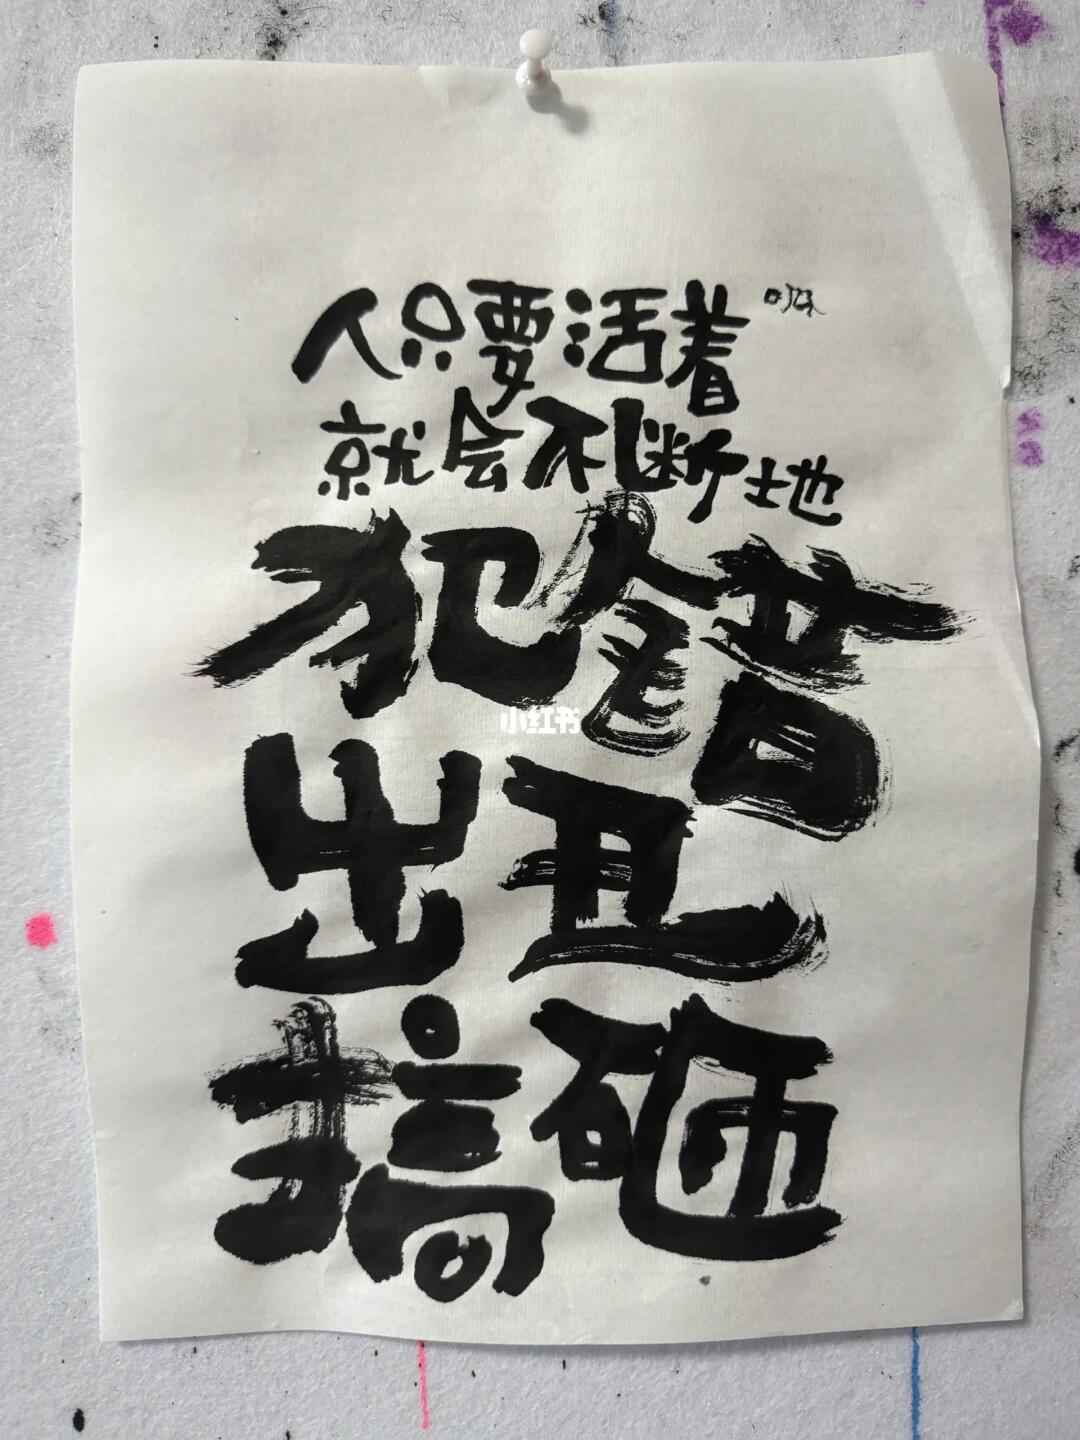 人只要活着
就会不断地
犯错
出丑
搞砸
小红书